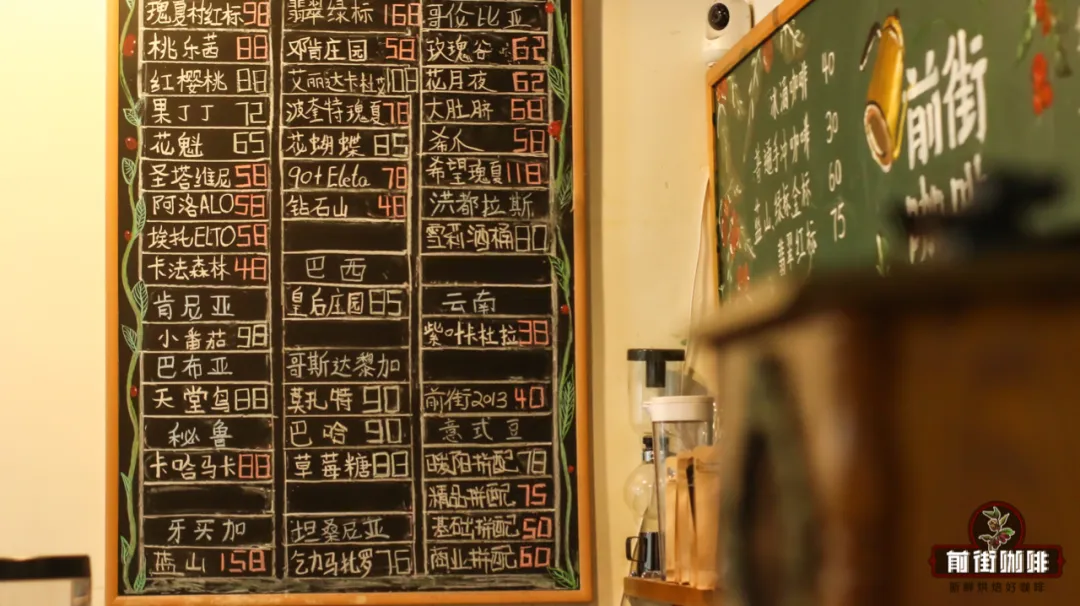 瑰夏村红标98
桃乐茜88
红樱桃88
果丁丁72
花魁65
圣塔维尼58
阿洛ALO58
埃托ELTO58
卡法森林48
肯尼亚
小番茄98
巴布亚
天堂鸟88
秘鲁
卡哈马卡88
牙买加
蓝山158
翡翠绿标168
邓肯庄园58
艾丽达卡杜艾108
波奎特瑰夏78
花蝴蝶85
90+Eleta 78
钻石山48
巴西
皇后庄园85
哥斯达黎加
莫扎特90
巴哈90
草莓糖88
坦桑尼亚
乞力马扎罗76
哥伦比亚
玫瑰谷62
花月夜62
大肚脐68
希爪58
希望瑰夏118
洪都拉斯
雪莉酒桶80
云南
紫叶卡杜拉38
前街2013 40
意式豆
暖阳拼配78
精品拼配75
基础拼配50
商业拼配60
冰滴咖啡 40
普通手冲咖啡 30
蓝山,绿标,金标 60
翡翠红标 75
前街
前街咖啡